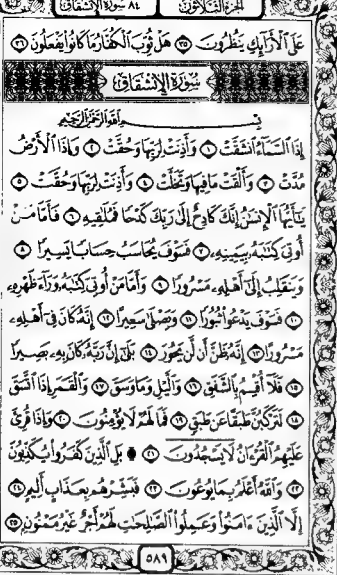 الجزء الثلاثون ٨٤ سورة الإنشقاق
عَلَى ٱلْأَرَآئِكِ يَنظُرُونَ ٣٥ هَلْ ثُوِّبَ ٱلْكُفَّارُ مَا كَانُوا۟ يَفْعَلُونَ ٣٦
سُورَةُ الإِنشِقَاقِ
بِسْمِ ٱللَّهِ ٱلرَّحْمَٰنِ ٱلرَّحِيمِ
إِذَا ٱلسَّمَآءُ ٱنشَقَّتْ ١ وَأَذِنَتْ لِرَبِّهَا وَحُقَّتْ ٢ وَإِذَا ٱلْأَرْضُ
مُدَّتْ ٣ وَأَلْقَتْ مَا فِيهَا وَتَخَلَّتْ ٤ وَأَذِنَتْ لِرَبِّهَا وَحُقَّتْ ٥
يَٰٓأَيُّهَا ٱلْإِنسَٰنُ إِنَّكَ كَادِحٌ إِلَىٰ رَبِّكَ كَدْحًا فَمُلَٰقِيهِ ٦ فَأَمَّا مَنْ
أُوتِىَ كِتَٰبَهُۥ بِيَمِينِهِۦ ٧ فَسَوْفَ يُحَاسَبُ حِسَابًا يَسِيرًا ٨
وَيَنقَلِبُ إِلَىٰٓ أَهْلِهِۦ مَسْرُورًا ٩ وَأَمَّا مَنْ أُوتِىَ كِتَٰبَهُۥ وَرَآءَ ظَهْرِهِۦ
١٠ فَسَوْفَ يَدْعُوا۟ ثُبُورًا ١١ وَيَصْلَىٰ سَعِيرًا ١٢ إِنَّهُۥ كَانَ فِىٓ أَهْلِهِۦ
مَسْرُورًا ١٣ إِنَّهُۥ ظَنَّ أَن لَّن يَحُورَ ١٤ بَلَىٰٓ إِنَّ رَبَّهُۥ كَانَ بِهِۦ بَصِيرًا
١٥ فَلَآ أُقْسِمُ بِٱلشَّفَقِ ١٦ وَٱلَّيْلِ وَمَا وَسَقَ ١٧ وَٱلْقَمَرِ إِذَا ٱتَّسَقَ
١٨ لَتَرْكَبُنَّ طَبَقًا عَن طَبَقٍ ١٩ فَمَا لَهُمْ لَا يُؤْمِنُونَ ٢٠ وَإِذَا قُرِئَ
عَلَيْهِمُ ٱلْقُرْءَانُ لَا يَسْجُدُونَ ۩ ٢١ بَلِ ٱلَّذِينَ كَفَرُوا۟ يُكَذِّبُونَ
٢٢ وَٱللَّهُ أَعْلَمُ بِمَا يُوعُونَ ٢٣ فَبَشِّرْهُم بِعَذَابٍ أَلِيمٍ ٢٤
إِلَّا ٱلَّذِينَ ءَامَنُوا۟ وَعَمِلُوا۟ ٱلصَّٰلِحَٰتِ لَهُمْ أَجْرٌ غَيْرُ مَمْنُونٍۭ ٢٥
٥٨٩